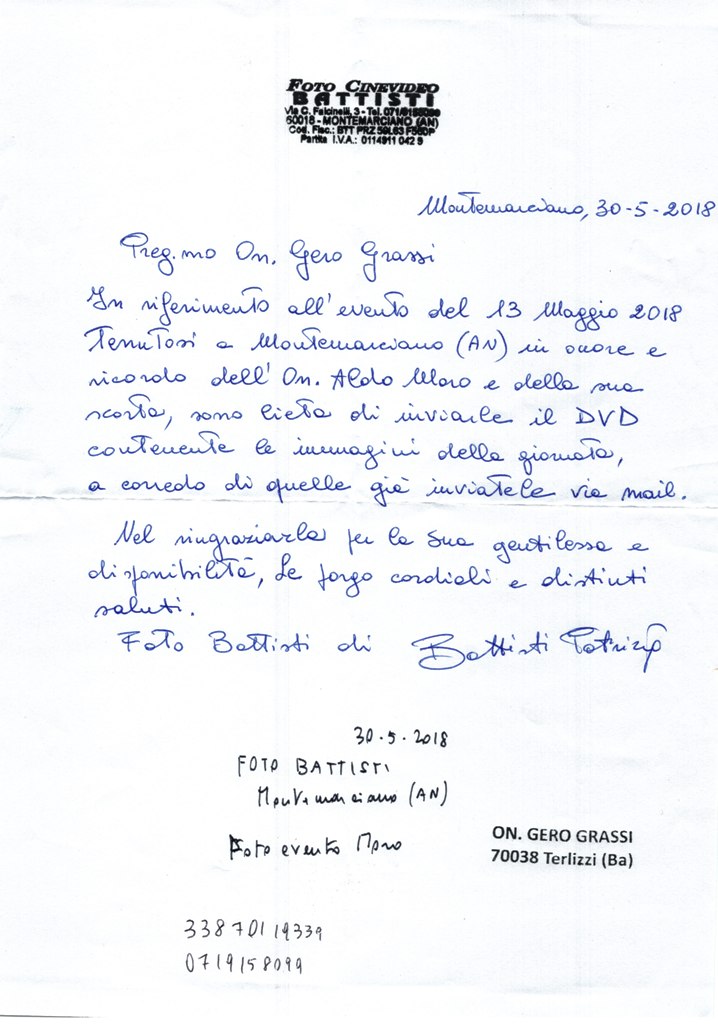 FOTO CINEVIDEO
BATTISTI
Via C. Falcinelli, 3 - Tel.
60018 - MONTEMARCIANO (AN)
Cod. Fisc.: BTT PRZ
Partita I.V.A.: 0114911 042 9
Montemarciano, 30-5-2018
Preg.mo On. Gero Grassi
In riferimento all'evento del 13 Maggio 2018
tenutosi a Montemarciano (AN) in onore e
ricordo dell'On. Aldo Moro e della sua
scorta, sono lieta di inviarle il DVD
contenente le immagini della giornata,
a corredo di quelle già inviatele via mail.
Nel ringraziarla per la Sua gentilessa e
disponibilità, Le porgo cordiali e distinti
saluti.
Foto Battisti di Battisti Patrizia
30.5.2018
FOTO BATTISTI
Montemarciano (AN)
Foto evento Moro
ON. GERO GRASSI
70038 Terlizzi (Ba)
33870119339
0719158099